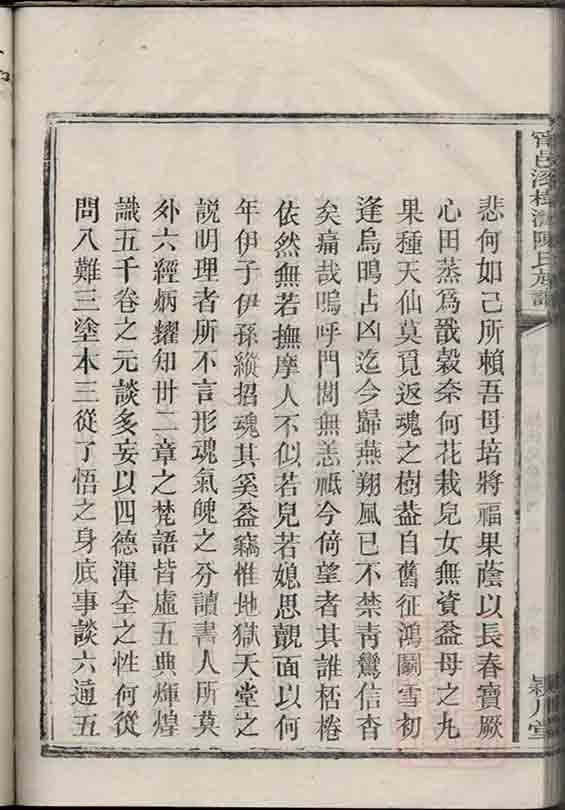 悲何如已所賴吾母培將福果蔭以長春寶厥
心田蒸爲戩穀奈何花栽兒女無資益母之九
果種天仙莫覓返魂之樹葢自舊征鴻鬭雪初
逢烏鴠占凶迄今歸燕翔風已不禁靑鸞信杳
矣痛哉嗚呼門閭無恙祇今倚望者其誰桮棬
依然無若撫摩人不似若兒若媳思覿面以何
年伊子伊孫縱招魂其奚益竊惟地獄天堂之
說明理者所不言形魂氣魄之分讀書人所莫
外六經炳耀知卅二章之梵語皆虛五典煇煌
識五千卷之元談多妄以四德渾全之性何從
問八難三塗本三從了悟之身底事談六通五
陳氏族譜
潁川堂